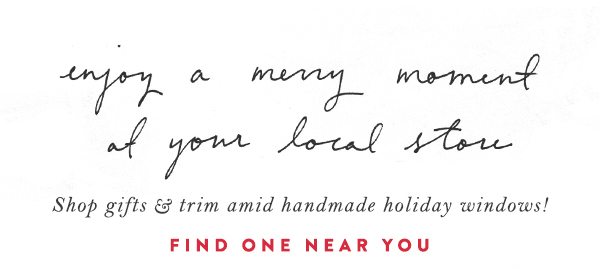 enjoy a merry moment
at your local store
Shop gifts & trim amid handmade holiday windows!
FIND ONE NEAR YOU